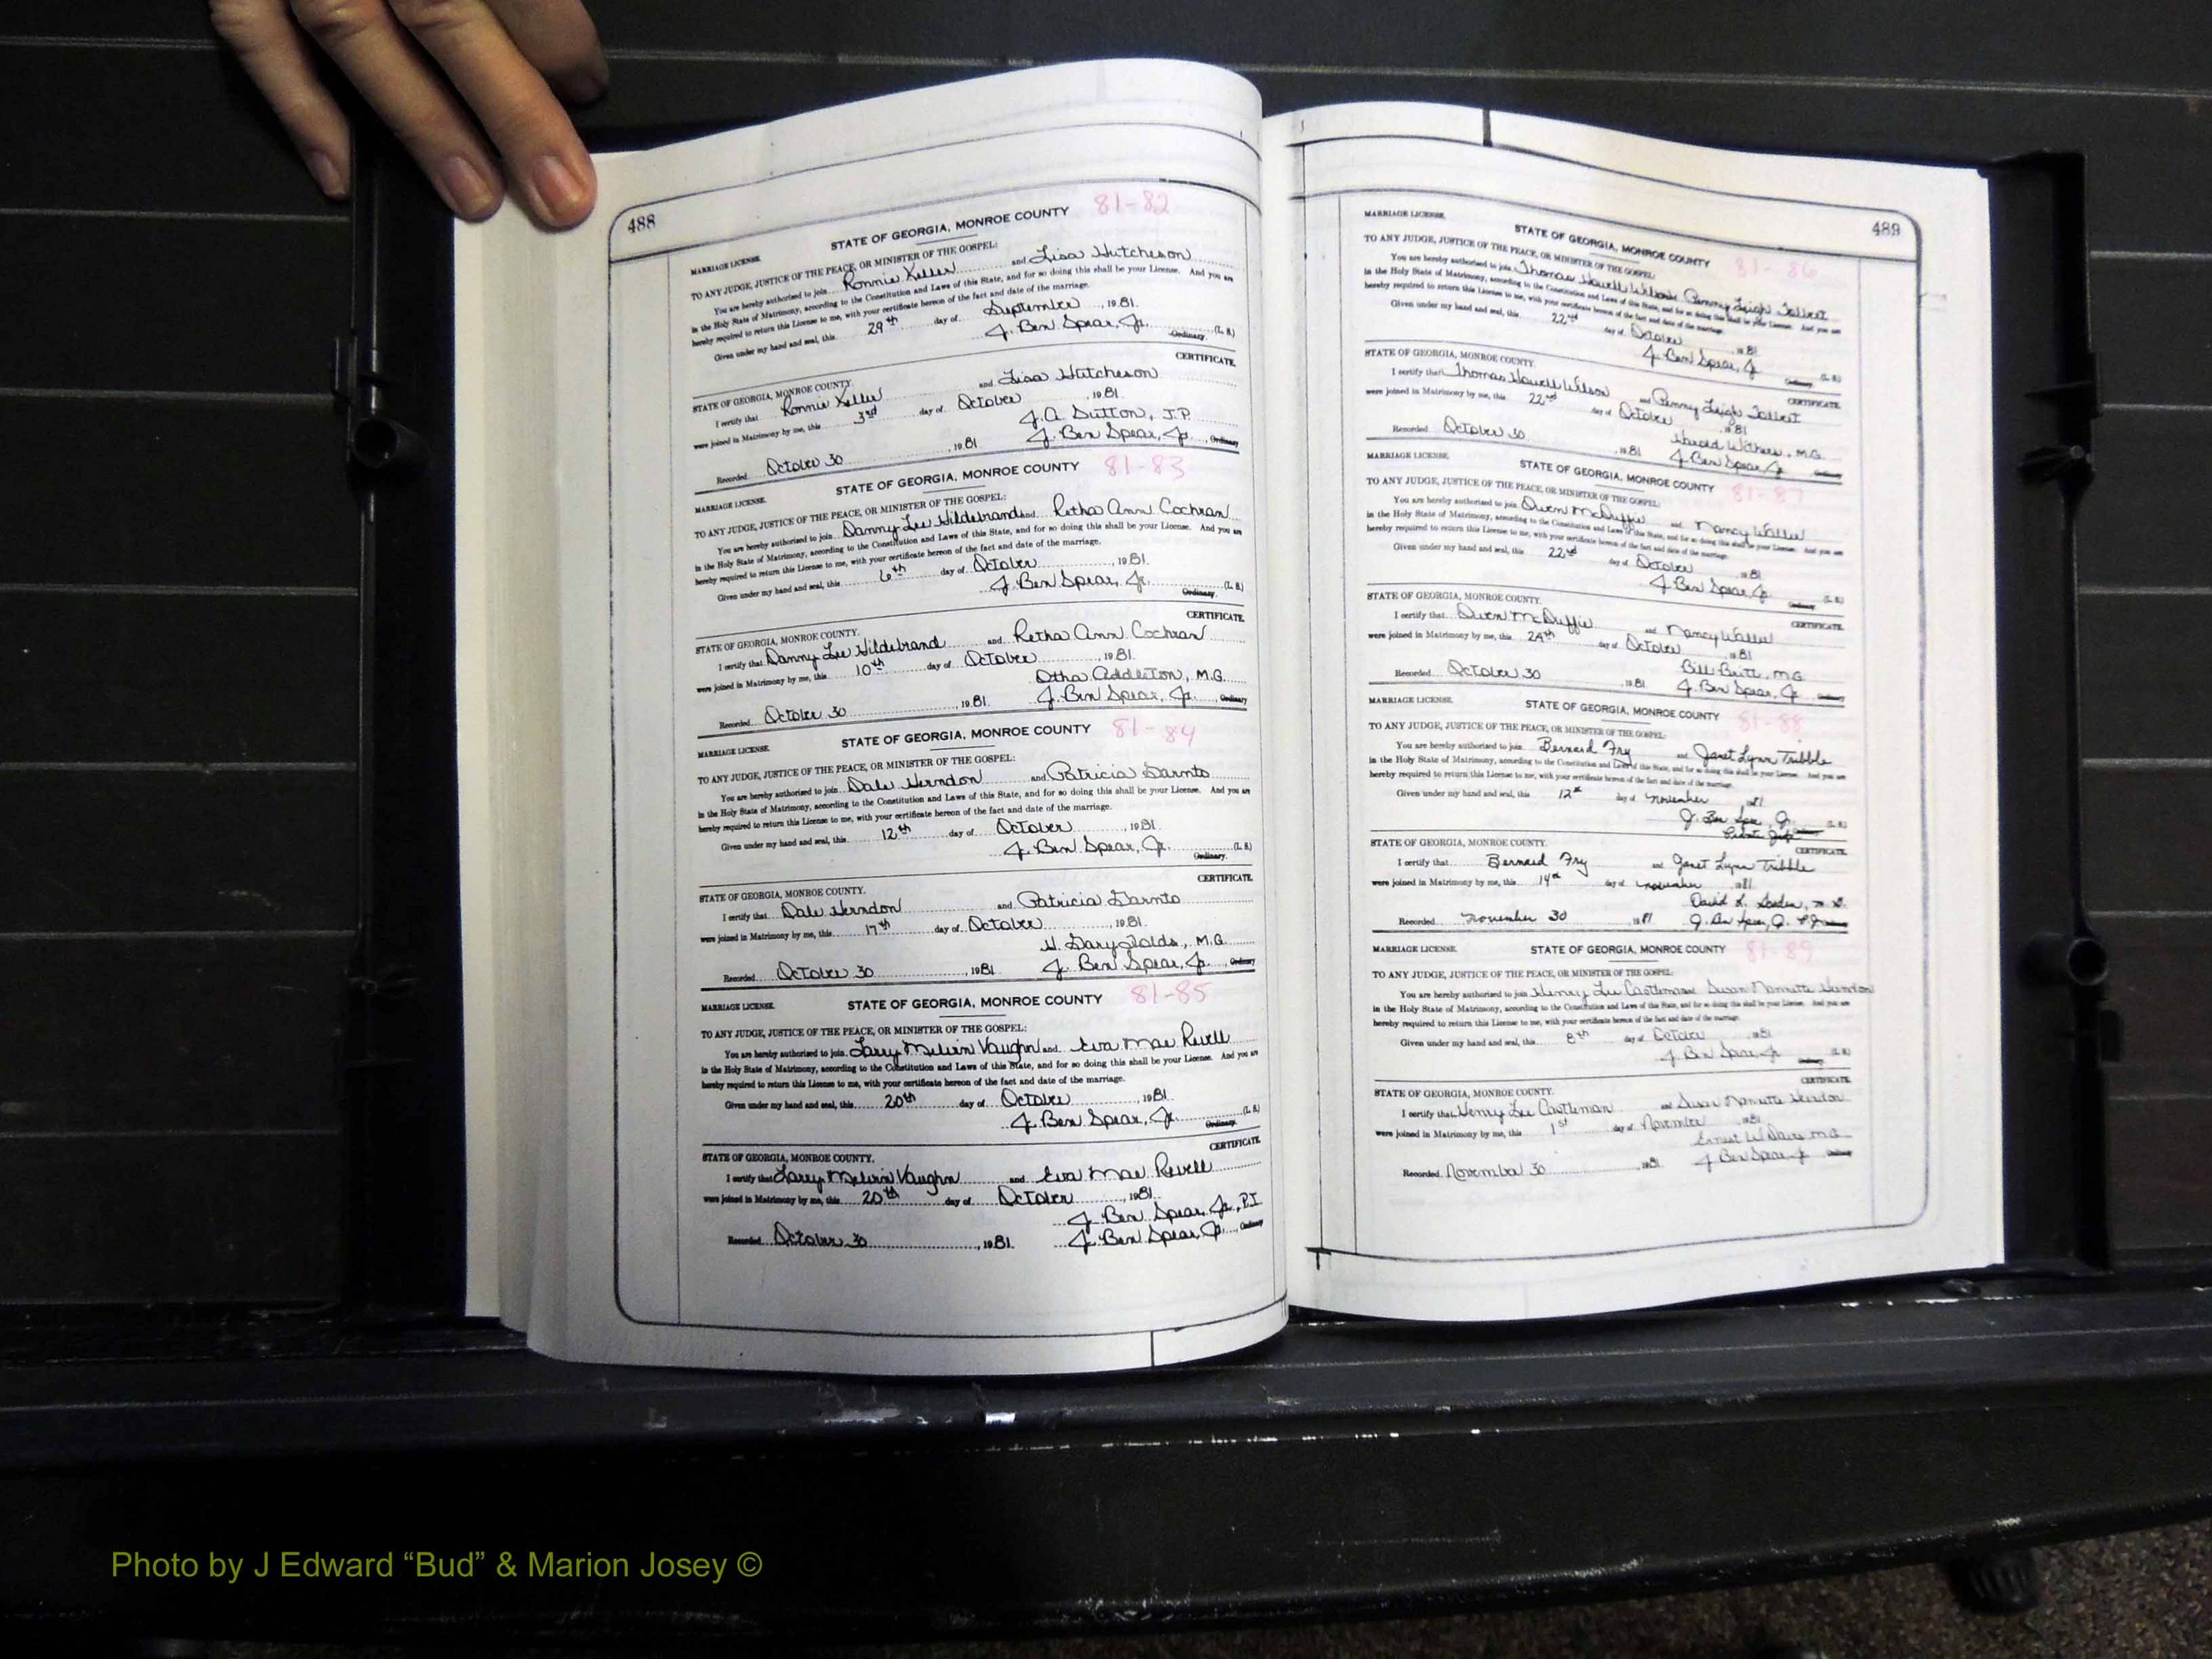 488
81-82
STATE OF GEORGIA, MONROE COUNTY
MARRIAGE LICENSE.
TO ANY JUDGE, JUSTICE OF THE PEACE, OR MINISTER OF THE GOSPEL:
You are hereby authorized to join Ronnie Keller and Lisa Hutcheson
in the Holy State of Matrimony, according to the Constitution and Laws of this State, and for so doing this shall be your License. And you are
hereby required to return this License to me, with your certificate hereon of the fact and date of the marriage.
Given under my hand and seal, this 29th day of September, 1981.
J. Ben Spear, Jr. (L. S.)
Ordinary.
CERTIFICATE.
STATE OF GEORGIA, MONROE COUNTY.
I certify that Ronnie Keller and Lisa Hutcheson
were joined in Matrimony by me, this 3rd day of October, 1981.
J.A. Sutton, J.P.
Recorded October 30, 1981 J. Ben Spear, Jr., Ordinary
81-83
MARRIAGE LICENSE. STATE OF GEORGIA, MONROE COUNTY
TO ANY JUDGE, JUSTICE OF THE PEACE, OR MINISTER OF THE GOSPEL:
You are hereby authorized to join Danny Lee Hildebrand and Retha Ann Cochran
in the Holy State of Matrimony, according to the Constitution and Laws of this State, and for so doing this shall be your License. And you are
hereby required to return this License to me, with your certificate hereon of the fact and date of the marriage.
Given under my hand and seal, this 6th day of October, 1981.
J. Ben Spear, Jr. (L. S.)
Ordinary.
CERTIFICATE.
STATE OF GEORGIA, MONROE COUNTY.
I certify that Danny Lee Hildebrand and Retha Ann Cochran
were joined in Matrimony by me, this 10th day of October, 1981.
Otha Addleton, M.G.
Recorded October 30, 1981. J. Ben Spear, Jr., Ordinary
81-84
MARRIAGE LICENSE. STATE OF GEORGIA, MONROE COUNTY
TO ANY JUDGE, JUSTICE OF THE PEACE, OR MINISTER OF THE GOSPEL:
You are hereby authorized to join Dale Herndon and Patricia Darnto
in the Holy State of Matrimony, according to the Constitution and Laws of this State, and for so doing this shall be your License. And you are
hereby required to return this License to me, with your certificate hereon of the fact and date of the marriage.
Given under my hand and seal, this 12th day of October, 1981.
J. Ben Spear, Jr. (L. S.)
Ordinary.
CERTIFICATE.
STATE OF GEORGIA, MONROE COUNTY.
I certify that Dale Herndon and Patricia Darnto
were joined in Matrimony by me, this 17th day of October, 1981.
H. Gary Folds, M.G.
Recorded October 30, 1981 J. Ben Spear, Jr., Ordinary
81-85
MARRIAGE LICENSE. STATE OF GEORGIA, MONROE COUNTY
TO ANY JUDGE, JUSTICE OF THE PEACE, OR MINISTER OF THE GOSPEL:
You are hereby authorized to join Larry Melvin Vaughn and Eva Mae Revell
in the Holy State of Matrimony, according to the Constitution and Laws of this State, and for so doing this shall be your License. And you are
hereby required to return this License to me, with your certificate hereon of the fact and date of the marriage.
Given under my hand and seal, this 20th day of October, 1981.
J. Ben Spear, Jr. (L. S.)
Ordinary.
CERTIFICATE.
STATE OF GEORGIA, MONROE COUNTY.
I certify that Larry Melvin Vaughn and Eva Mae Revell
were joined in Matrimony by me, this 20th day of October, 1981.
J. Ben Spear, Jr., P.J.
Recorded October 30, 1981. J. Ben Spear, Jr., Ordinary
489
MARRIAGE LICENSE. STATE OF GEORGIA, MONROE COUNTY
81-86
TO ANY JUDGE, JUSTICE OF THE PEACE, OR MINISTER OF THE GOSPEL:
You are hereby authorized to join Thomas Howell Wilson & Penny Leigh Talbert
in the Holy State of Matrimony, according to the Constitution and Laws of this State, and for so doing this shall be your License. And you are
hereby required to return this License to me, with your certificate hereon of the fact and date of the marriage.
Given under my hand and seal, this 22nd day of October, 1981
J. Ben Spear, Jr. (L. S.)
Ordinary.
CERTIFICATE.
STATE OF GEORGIA, MONROE COUNTY.
I certify that Thomas Howell Wilson and Penny Leigh Talbert
were joined in Matrimony by me, this 22nd day of October, 1981
Harold Withers, M.G.
Recorded October 30, 1981 J. Ben Spear, Jr. Ordinary
MARRIAGE LICENSE. STATE OF GEORGIA, MONROE COUNTY
81-87
TO ANY JUDGE, JUSTICE OF THE PEACE, OR MINISTER OF THE GOSPEL:
You are hereby authorized to join Owen McDuffie and Nancy Waller
in the Holy State of Matrimony, according to the Constitution and Laws of this State, and for so doing this shall be your License. And you are
hereby required to return this License to me, with your certificate hereon of the fact and date of the marriage.
Given under my hand and seal, this 22nd day of October, 1981
J. Ben Spear, Jr. (L. S.)
Ordinary.
CERTIFICATE.
STATE OF GEORGIA, MONROE COUNTY.
I certify that Owen McDuffie and Nancy Waller
were joined in Matrimony by me, this 24th day of October, 1981
Bill Britt, M.G.
Recorded October 30, 1981 J. Ben Spear, Jr. Ordinary
MARRIAGE LICENSE. STATE OF GEORGIA, MONROE COUNTY
81-88
TO ANY JUDGE, JUSTICE OF THE PEACE, OR MINISTER OF THE GOSPEL:
You are hereby authorized to join Bernard Fry and Janet Lynn Tribble
in the Holy State of Matrimony, according to the Constitution and Laws of this State, and for so doing this shall be your License. And you are
hereby required to return this License to me, with your certificate hereon of the fact and date of the marriage.
Given under my hand and seal, this 12th day of November 1981
J. Ben Spear, Jr. (L. S.)
Probate Judge
CERTIFICATE.
STATE OF GEORGIA, MONROE COUNTY.
I certify that Bernard Fry and Janet Lynn Tribble
were joined in Matrimony by me, this 14th day of November 1981
David L.
Recorded November 30 1981 J. Ben Spear, Jr. PJ
MARRIAGE LICENSE. STATE OF GEORGIA, MONROE COUNTY 81-89
TO ANY JUDGE, JUSTICE OF THE PEACE, OR MINISTER OF THE GOSPEL:
You are hereby authorized to join Henry Lee Castleman and Susan Nannette Herndon
in the Holy State of Matrimony, according to the Constitution and Laws of this State, and for so doing this shall be your License. And you are
hereby required to return this License to me, with your certificate hereon of the fact and date of the marriage.
Given under my hand and seal, this 8th day of October 1981
J. Ben Spear, Jr. (L. S.)
Ordinary.
CERTIFICATE.
STATE OF GEORGIA, MONROE COUNTY.
I certify that Henry Lee Castleman and Susan Nannette Herndon
were joined in Matrimony by me, this 1st day of November 1981
Ernest W. Davis M.G.
Recorded November 30, 1981. J. Ben Spear, Jr. Ordinary
Photo by J Edward “Bud” & Marion Josey ©